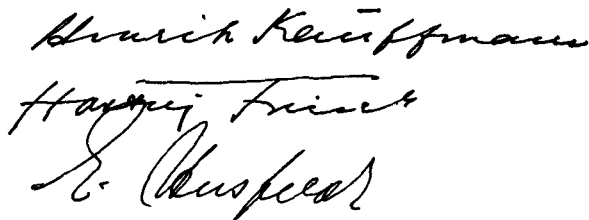 Henrik Kauffmann
Hartvig Frisch
E. Husfeldt